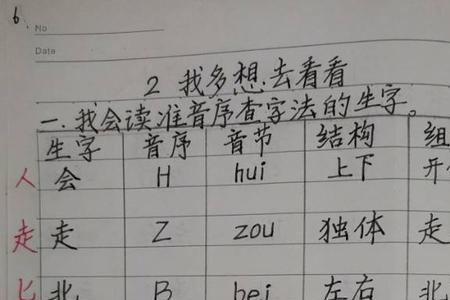 6
No
Date
2 我多想去看看
一.我会读准音序查字法的生字。
生字 音序 音节 结构 组
人 会 H hui 上下 开
走 走 Z zou 独体 走
匕 北 B bei 左右 北